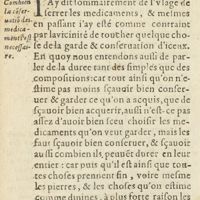 Combien
la cõser-
uatiõ des
medica-
mens est
necessai-
re.
I'Ay dit sommairement de l'vsage de
serrer les medicaments, & mesmes
en passant i'ay esté comme contraint
par la vicinité de toucher quelque cho-
se de la garde & conseruation d'iceux.
En quoy nous entendons aussi de par-
ler de la duree tant des simples que des
compositions: car tout ainsi qu'on n'e-
stime pas moins sçauoir bien conser-
uer & garder ce qu'on a acquis, que de
sçauoir bien acquerir, aussi n'est-ce pas
tout d'auoir sceu bien choisir les me-
dicaments qu'on veut garder, mais les
faut sçauoir bien conseruer, & sçauoir
aussi combien ils, peuuẽt durer en leur
entier: car puis qu'il est ainsi que tou-
tes choses prennent fin, voire mesme
les pierres, & les choses qu'on estime
comme diuines, à plus forte raison les